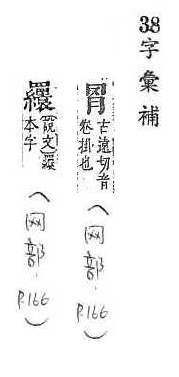 38字彙補
古遠切音
卷掛也
(网部.P.166)
[說文]繯
本字
(网部.P.166)